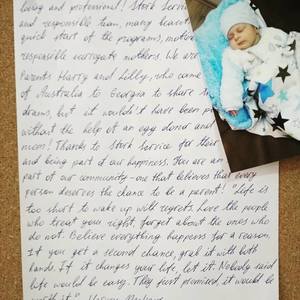 loving and professional! Stork Service
and responsible team, many
quick start of the programs,
responsible surrogate mothers. We are
Parents Harry and Lilly, who came
of Australia to Georgia to share
dreams, but it wouldn't have been
without the help of an egg donor and
mom! Thanks to Stork Service for their
and being part of our happiness. You are an
part of our community - one that believes that every
person deserves the chance to be a parent! "Life is
too short to wake up with regrets. Love the people
who treat your right, forget about the ones who
do not. Believe everything happens for a reason.
If you get a second chance, grab it with both
hands. If it changes your life, let it. Nobody said
life would be easy. They just promised, it would be